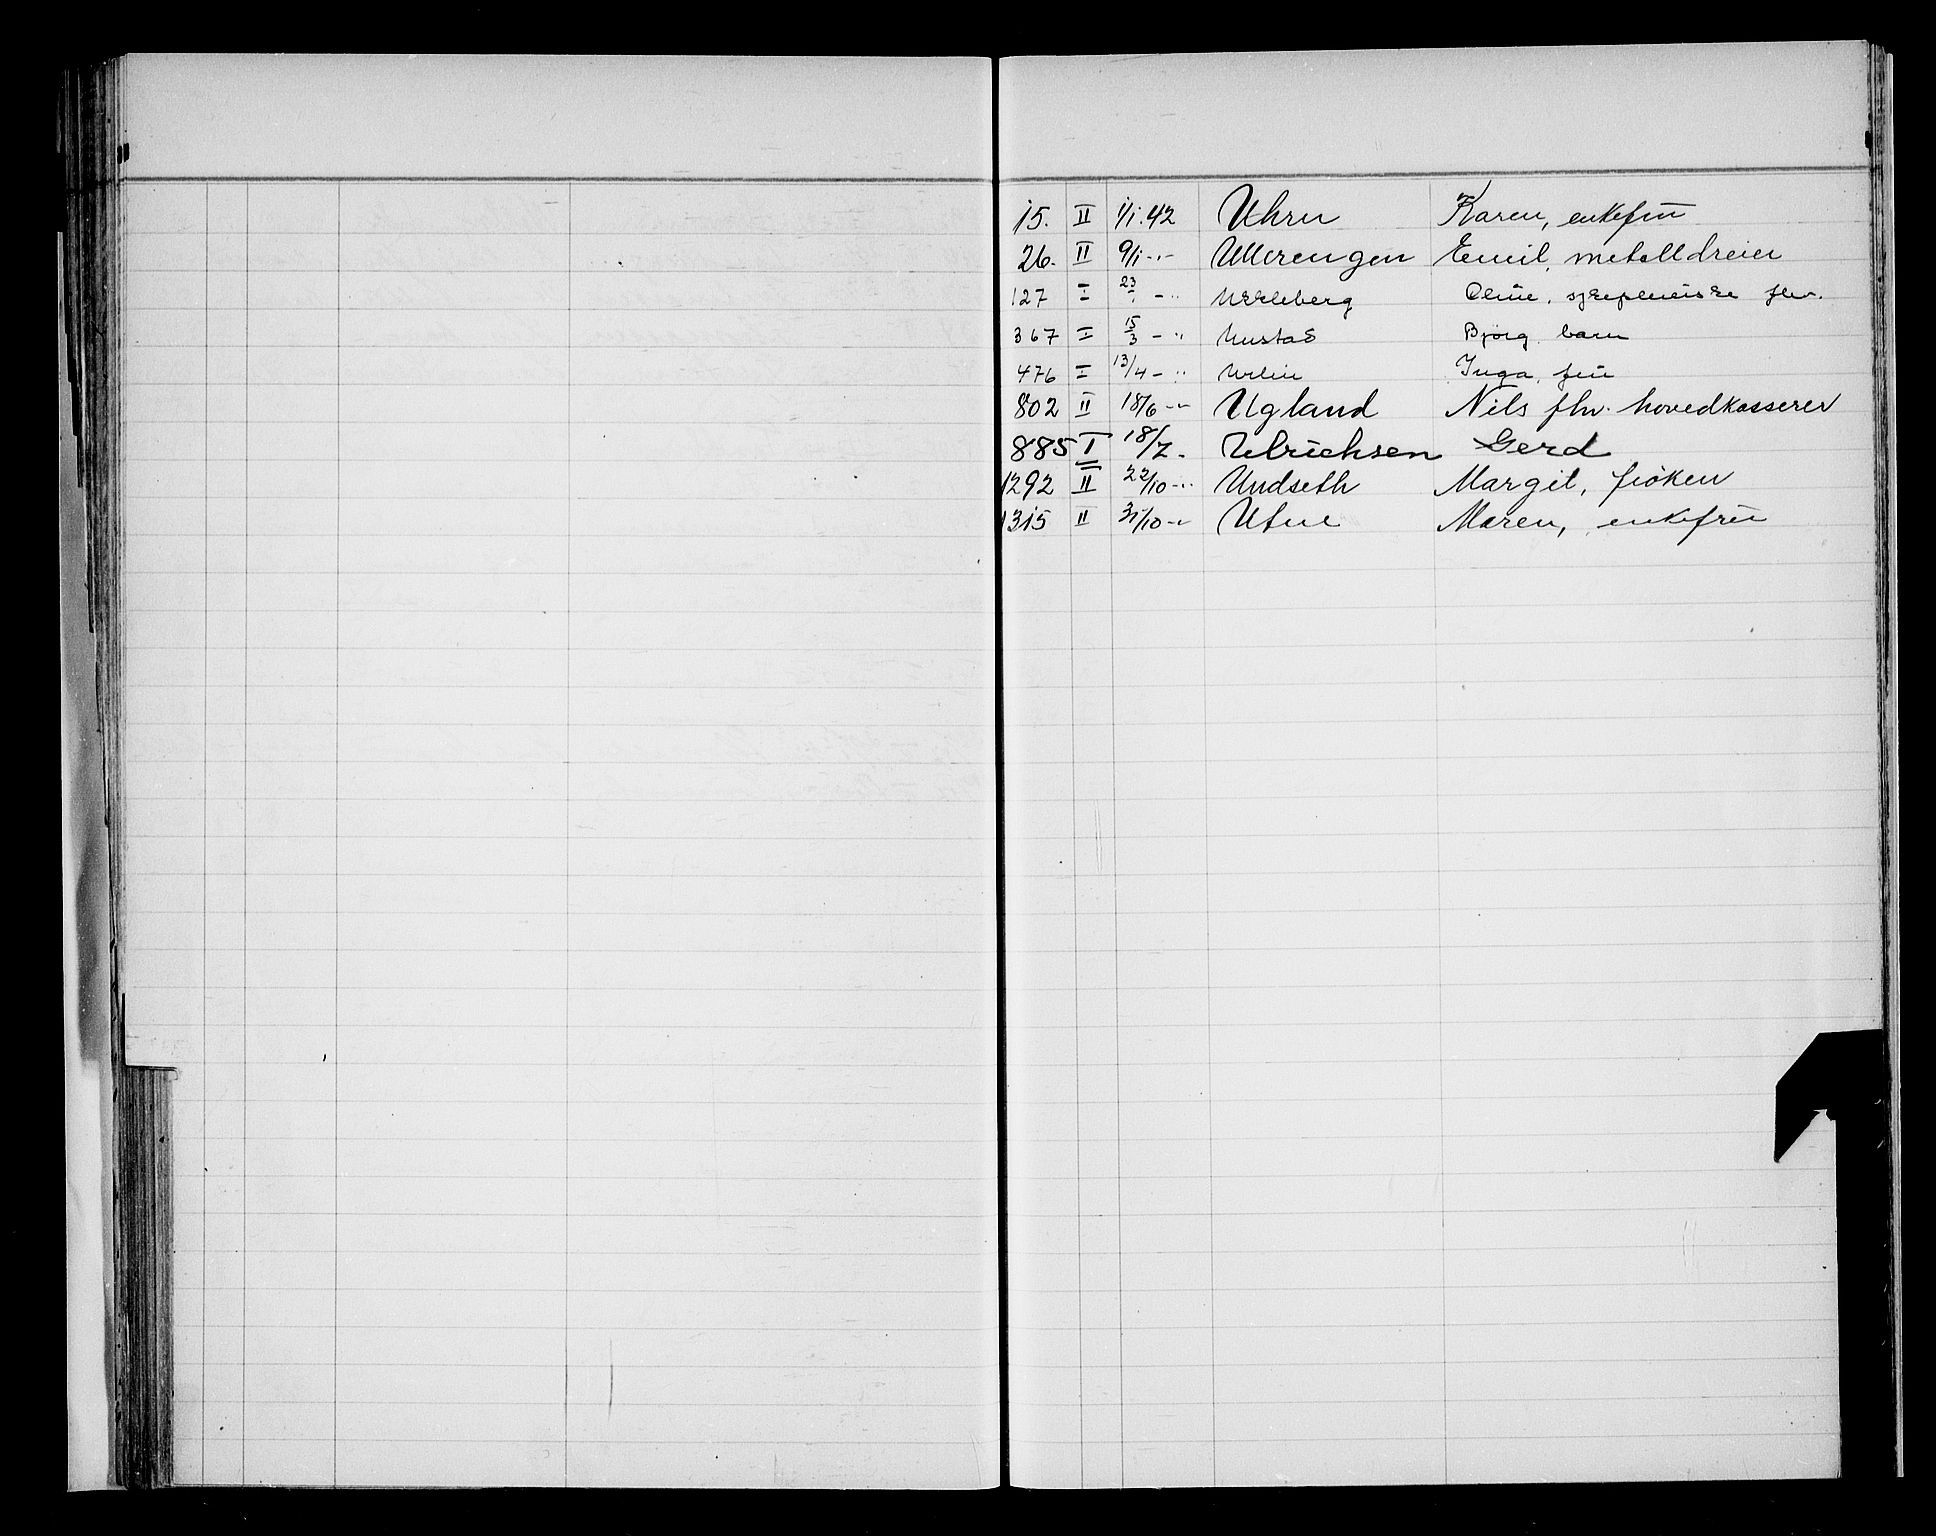 15. II 1/1.42 Uhrn Karen, enkefrü
26. II 9/1 -"- Ullerengen Emil, metalldreier
127 I 23/1 - " Oline, fhv.
367 I 15/3 - " Mustad Bjørg barn
476 I 13/4 - " Inga, frü
802 II 18/6 -"- Ugland Nils fhv. hovedkasserer
885 I 18/7 - Ulrichsen Gerd
1292 II 22/10 -"- Undseth Margit, frøken
1315 II 31/10 -"- Utne Maren, enkefrü